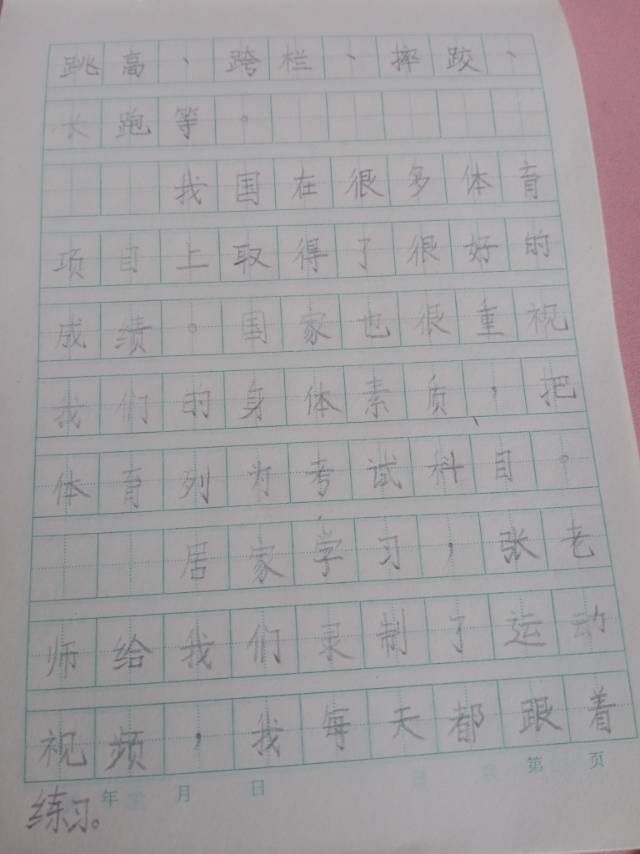 跳高、跨栏、摔跤、
长跑等。
我国在很多体育
项目上取得了很好的
成绩。国家也很重视
我们的身体素质，把
体育列为考试科目。
居家学习，张老
师给我们录制了运动
视频，我每天都跟着
第 页
年 月 日
练习。